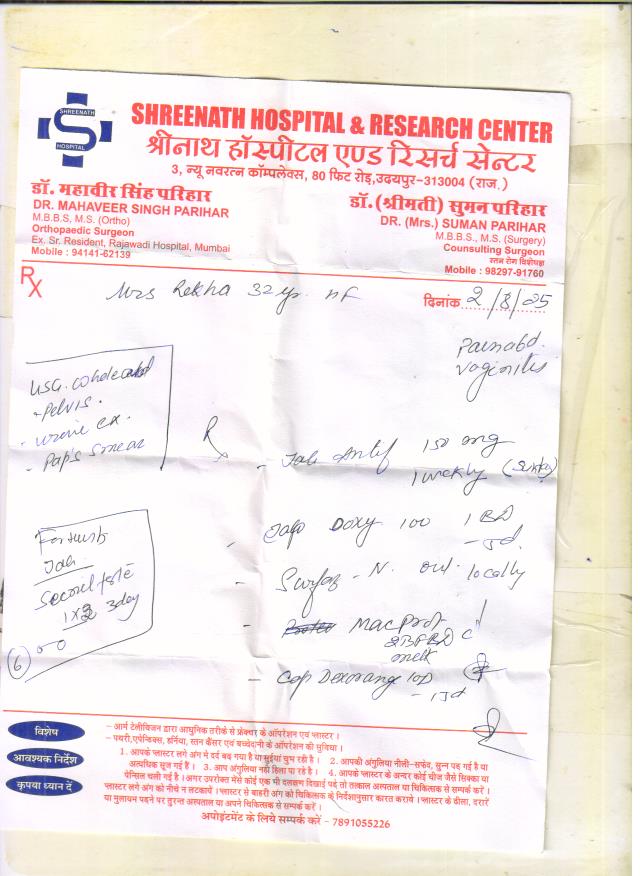 SHREENATH
S
HOSPITAL
SHREENATH HOSPITAL & RESEARCH CENTER
श्रीनाथ हॉस्पीटल एण्ड रिसर्च सेन्टर
3, न्यू नवरत्न कॉम्पलेक्स, 80 फिट रोड़, उदयपुर-313004 (राज.)
डॉ. महावीर सिंह परिहार
DR. MAHAVEER SINGH PARIHAR
M.B.B.S, M.S. (Ortho)
Orthopaedic Surgeon
Ex. Sr. Resident, Rajawadi Hospital, Mumbai
Mobile : 94141-62139
डॉ. (श्रीमती) सुमन परिहार
DR. (Mrs.) SUMAN PARIHAR
M.B.B.S., M.S. (Surgery)
Counsulting Surgeon
स्तन रोग विशेषज्ञ
Mobile : 98297-91760
Rx
Mrs Rekha 32 yr.
दिनांक 2/8/25
vaginitis
USG.
+ Pelvis.
- urine ex.
- Pap's smear
Rx
- Tab 150 mg
1 weekly
- Doxy 100 1 BD
- 5d.
- Surfaz - N. locally
-
- Cap Dexorange 1 OD
Tab.
3 day
6
विशेष
आवश्यक निर्देश
कृपया ध्यान दें
- आर्म टेलीविजन द्वारा आधुनिक तरीके से फ्रेक्चर के ऑपरेशन एवं प्लास्टर ।
- पथरी,एपेन्डिक्स, हर्निया, स्तन कैंसर एवं बच्चेदानी के ऑपरेशन की सुविधा ।
1. आपके प्लास्टर लगे अंग में दर्द बढ़ गया है या सुईयां चुभ रही है । 2. आपकी अंगुलिया नीली-सफेद, सुन्न पड़ गई है या
अत्यधिक सूज गई हैं । 3. आप अंगुलिया नहीं हिला पा रहे है । 4. आपके प्लास्टर के अन्दर कोई चीज जैसे सिक्का या
पेन्सिल चली गई है । अगर उपरोक्त में से कोई एक भी लक्षण दिखाई पड़े तो तत्काल अस्पताल या चिकित्सक से सम्पर्क करें ।
प्लास्टर लगे अंग को नीचे न लटकायें । प्लास्टर से बाहरी अंग को चिकित्सक के निर्देशानुसार करत कराये । प्लास्टर के ढीला, दरारें
या मुलायम पड़ने पर तुरन्त अस्पताल या अपने चिकित्सक से सम्पर्क करें ।
अपोइंटमेंट के लिये सम्पर्क करें - 7891055226